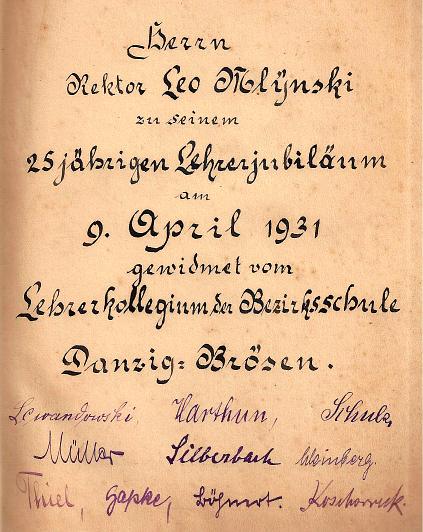 Herrn
Rektor Leo Mlÿnski
zu seinem
25jährigen Lehrerjubiläum
am
9. April 1931
gewidmet vom
Lehrerkollegium der Bezirksschule
Danzig=Brösen.
Lewandowski Harthun, Schulz,
Müller Silberbach Weinberg.
Thiel, Gapke, Böhnert. Koschorreck.